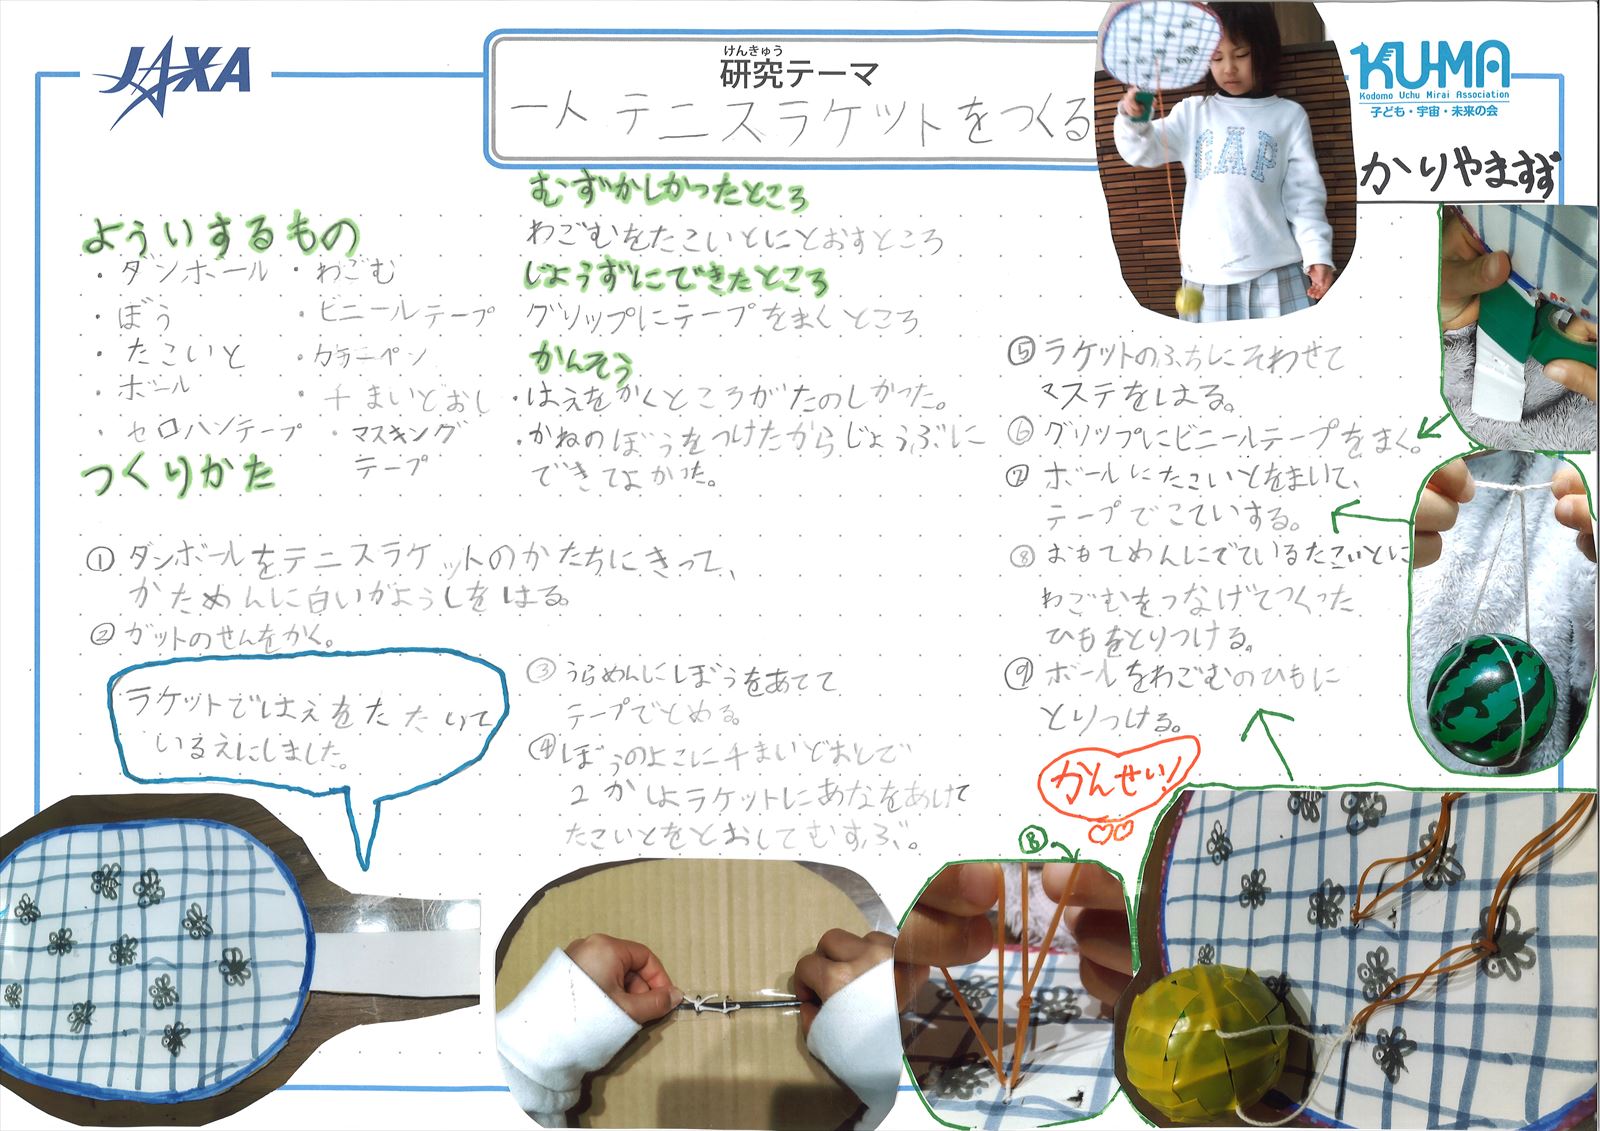 JAXA
けんきゅう
研究テーマ
一人テニスラケットをつくる
KU-MA
Kodomo Uchu Mirai Association
子ども・宇宙・未来の会
かりやますず
GAP
よういするもの
・ダンボール ・わごむ
・ぼう ・ビニールテープ
・たこいと ・カラーペン
・ボール ・千まいどおし
・セロハンテープ ・マスキング
テープ
つくりかた
①ダンボールをテニスラケットのかたちにきって、
かためんに白いがようしをはる。
②ガットのせんをかく。
ラケットではえをたたいて
いるえにしました。
むずかしかったところ
わごむをたこいとにとおすところ
じょうずにできたところ
グリップにテープをまくところ
かんそう
・はえをかくところがたのしかった。
・かねのぼうをつけたからじょうぶに
できてよかった。
③うらめんにぼうをあてて
テープでとめる。
④ぼうのよこに千まいどおしで
2かしょラケットにあなをあけて
たこいとをとおしてむすぶ。
⑤ラケットのふちにそわせて
マステをはる。
⑥グリップにビニールテープをまく。
⑦ボールにたこいとをまいて、
テープでこていする。
⑧おもてめんにでているたこいとに
わごむをつなげてつくった
ひもをとりつける。
⑨ボールをわごむのひもに
とりつける。
かんせい!
⑧